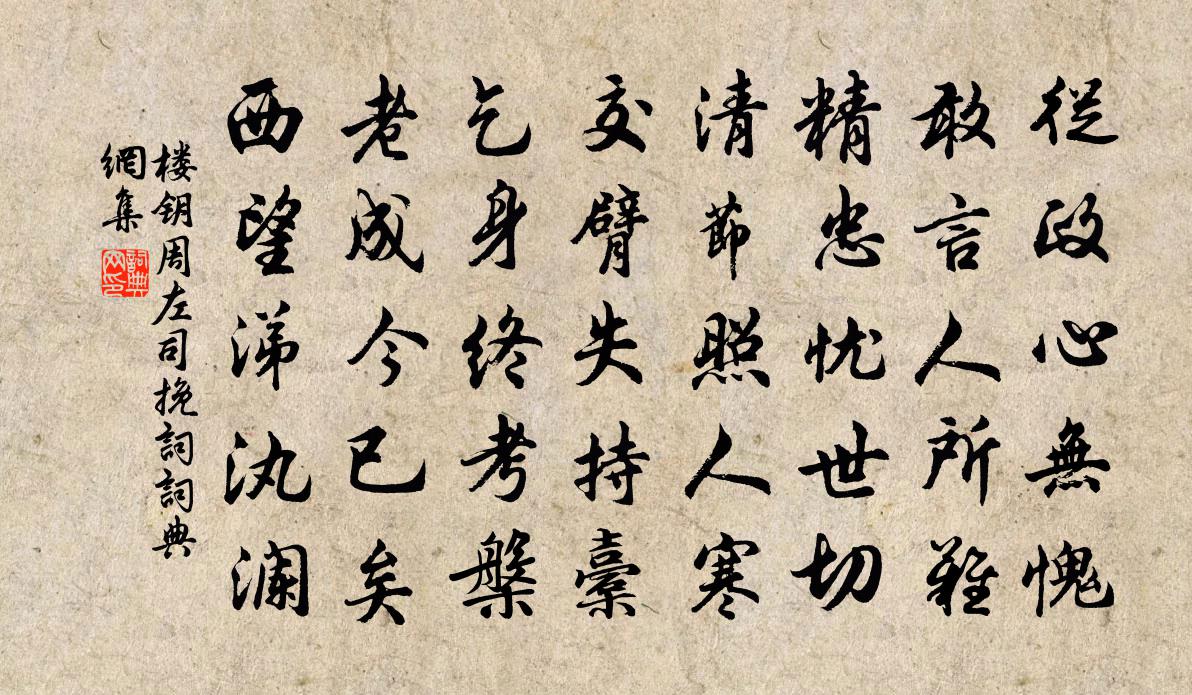 從政心無愧
敢言人所難
精忠忧世切
清節照人寒
交臂失持橐
乞身终考槃
老成今已矣
西望涕汍澜
楼钥周左司挽詞詞典
網集
詞典
网印